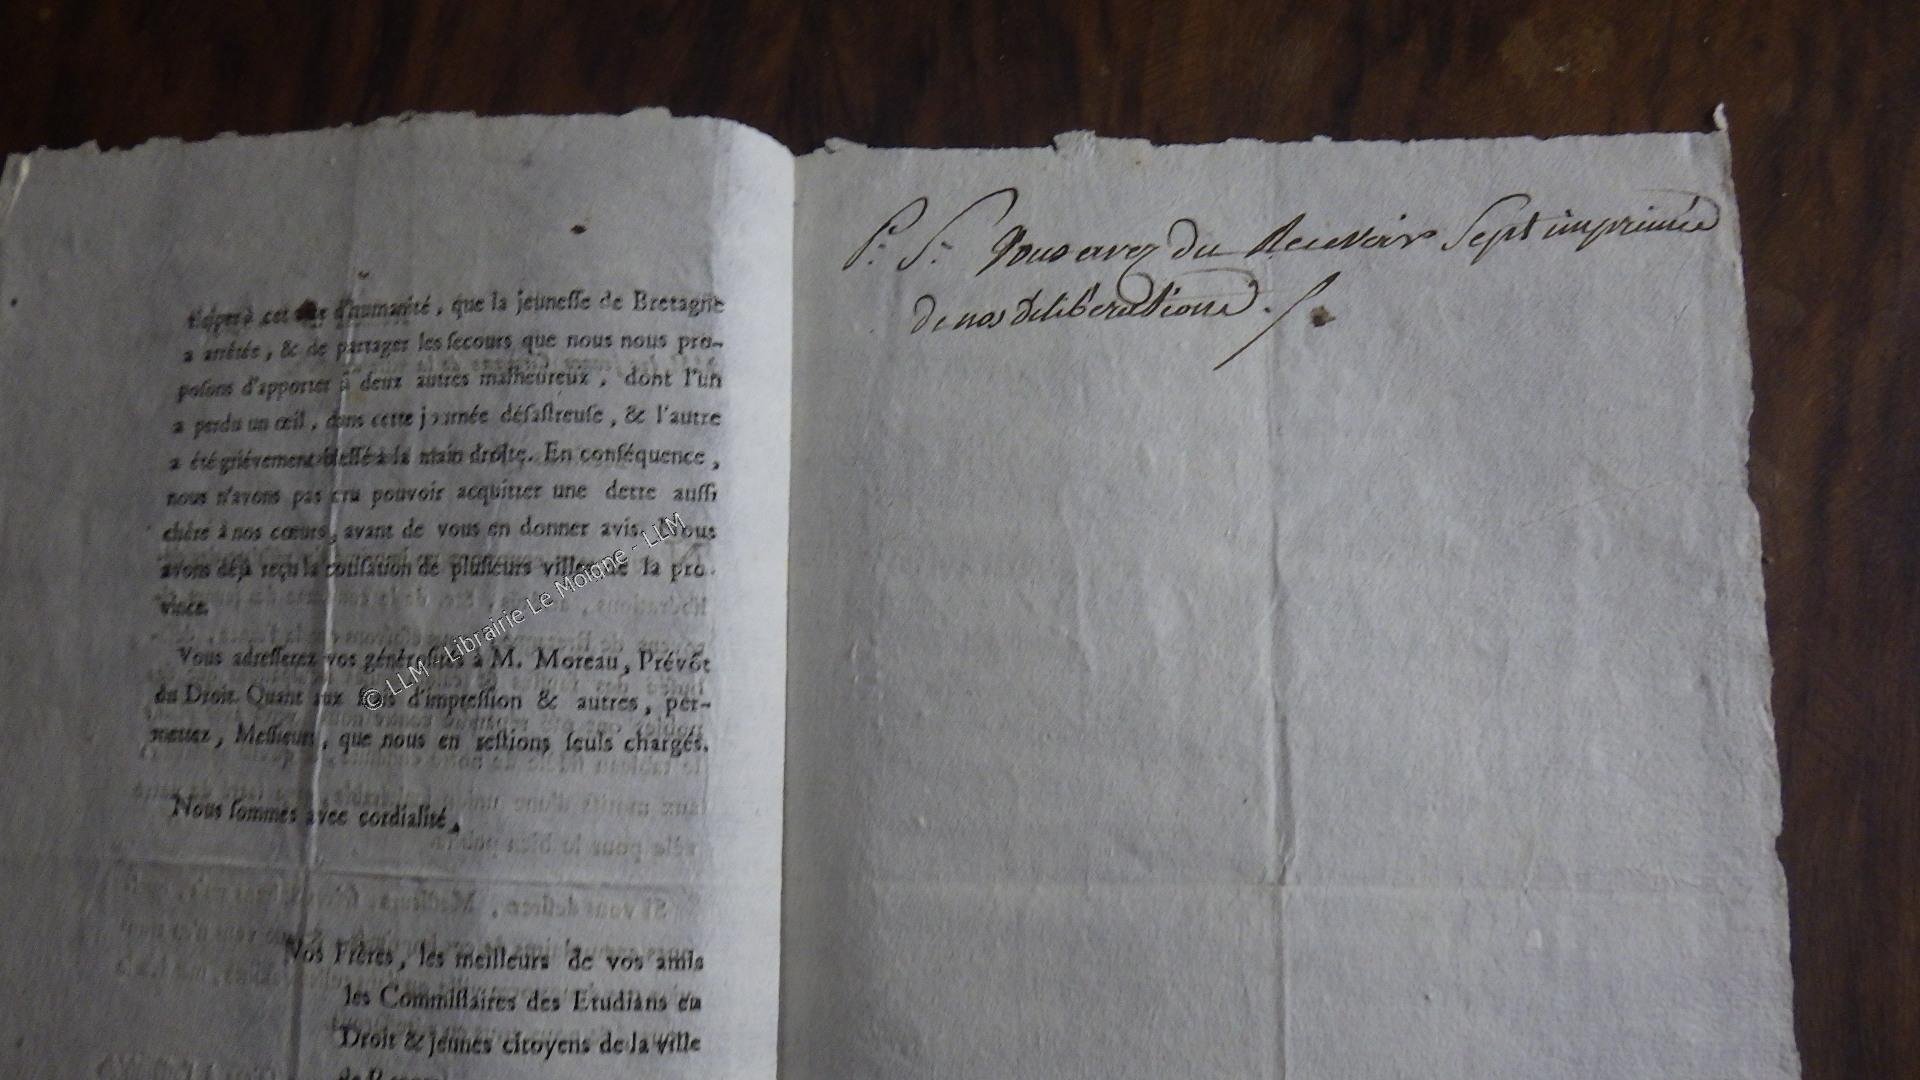 à cet d'humanité, que la jeuneſſe de Bretagne
a arrêtée, & de partager les ſecours que nous nous pro-
poſons d'apporter à deux autres malheureux, dont l'un
a perdu un œil, dans cette journée déſaſtreuſe, & l'autre
a été griévement bleſſé à la main droite. En conſéquence,
nous n'avons pas cru pouvoir acquitter une dette auſſi
chère à nos cœurs, avant de vous en donner avis. Nous
avons déjà reçu la cotiſation de pluſieurs villes de la pro-
vince.
Vous adreſſerez vos généroſités à M. Moreau, Prévôt
du Droit. Quant aux frais d'impreſſion & autres, per-
mettez, Meſſieurs, que nous en reſtions ſeuls chargés.
Nous ſommes avec cordialité,
Nos Frères, les meilleurs de vos amis
les Commiſſaires des Etudians en
Droit & jeunes citoyens de la ville
P. S. Vous avez du Recevoir Sept imprimés
de nos déliberations.
© LLM - Librairie Le Moigne - LLM